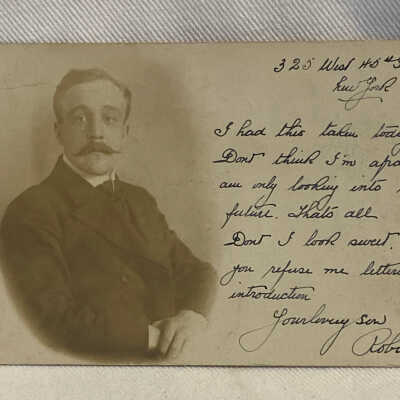 325 West 45th S
New York
I had this taken toda
Dont think I'm afra
am only looking into
future. Thats all
Dont I look sweet.
you refuse me letters
introduction
Your loving son
Robi